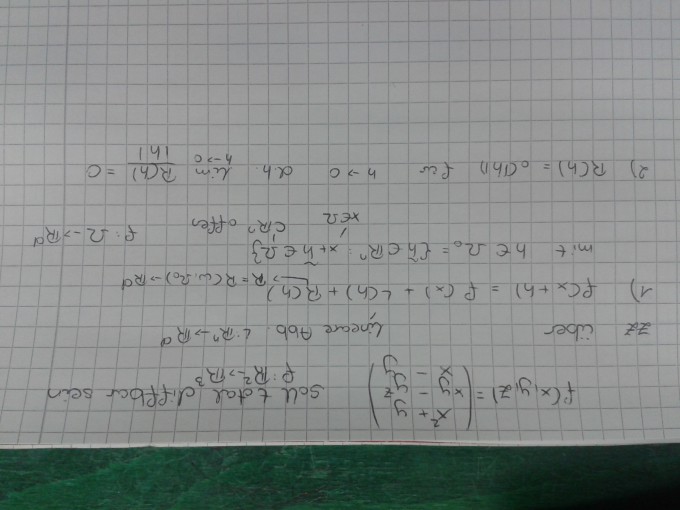 f(x,y,z) = ( x² + y
xy - yz
x - y ) soll total diffbar sein
f: ℝ² → ℝ³
zz über Lineare Abb. L: ℝⁿ → ℝᵈ
1) f(x+h) = f(x) + L(h) + R(h) → R = R(·, Ω₀) → ℝᵈ
mit h ∈ Ω₀ = {h̃ ∈ ℝⁿ : x + h̃ ∈ Ω} f: Ω → ℝᵈ
x ∈ Ω ⊂ ℝⁿ offen
2) R(h) = o(|h|) für h → 0 d.h. lim h→0 R(h)/|h| = 0